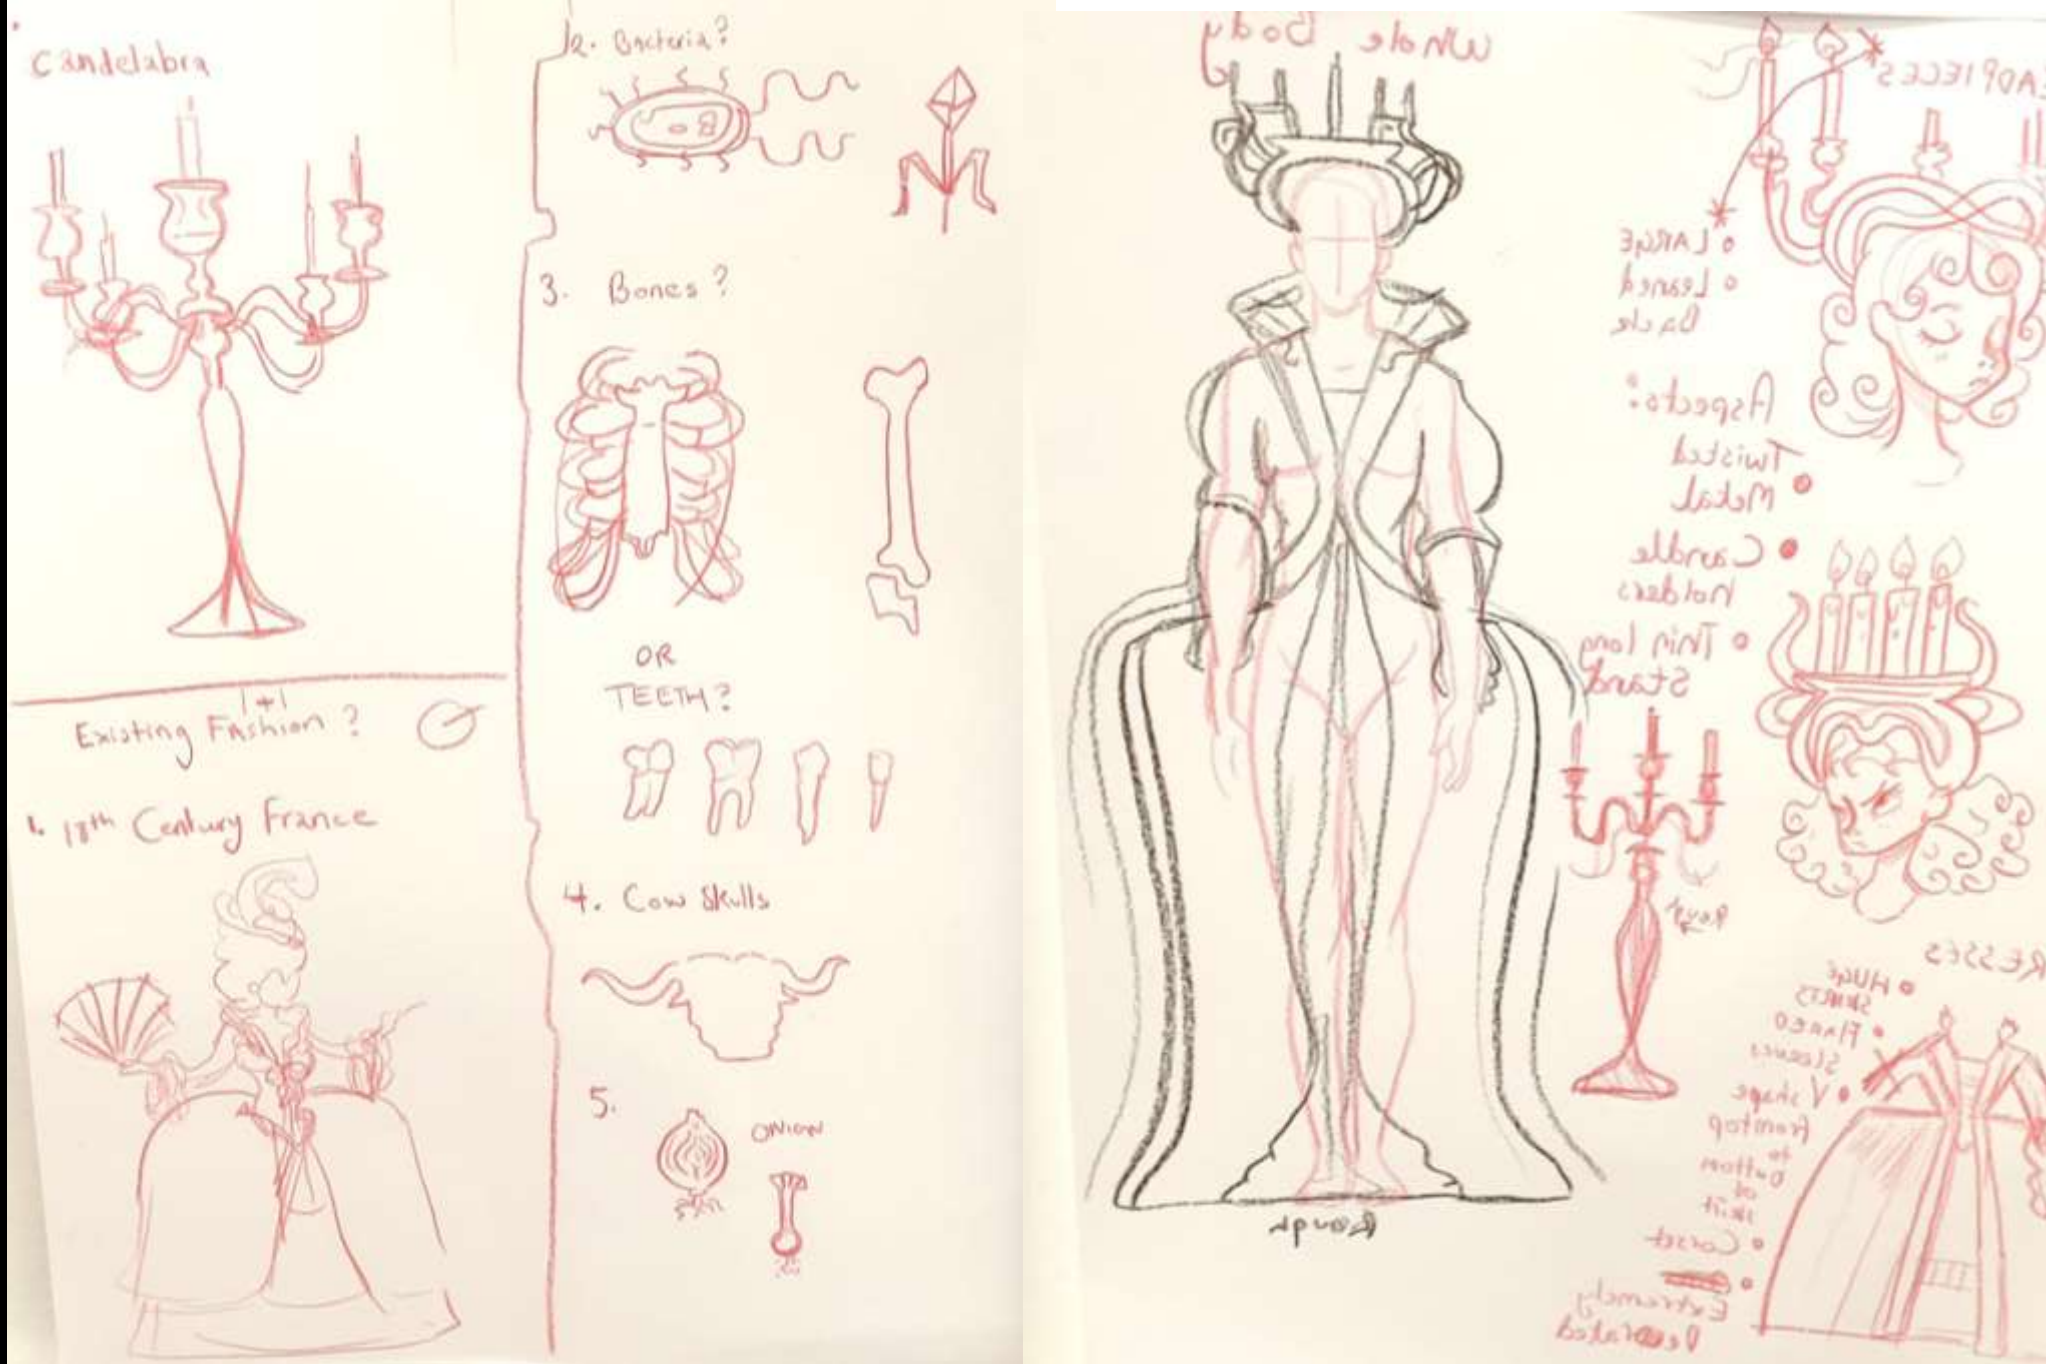 Candelabra
1+1
Existing Fashion?
1. 18th Century France
2. Bacteria?
3. Bones?
OR
TEETH?
4. Cow Skulls
5.
ONION
Whole Body
Rough
EADPIECES
• LARGE
• Leaned
Back
Aspects:
• Twisted
Metal
• Candle
holders
• Thin long
Stand
Rough
RESSES
• HUGE
SKIRTS
• Flared
Sleeves
• V shape
from top
to
bottom
of
skirt
• Corset
• Extremely
Decorated